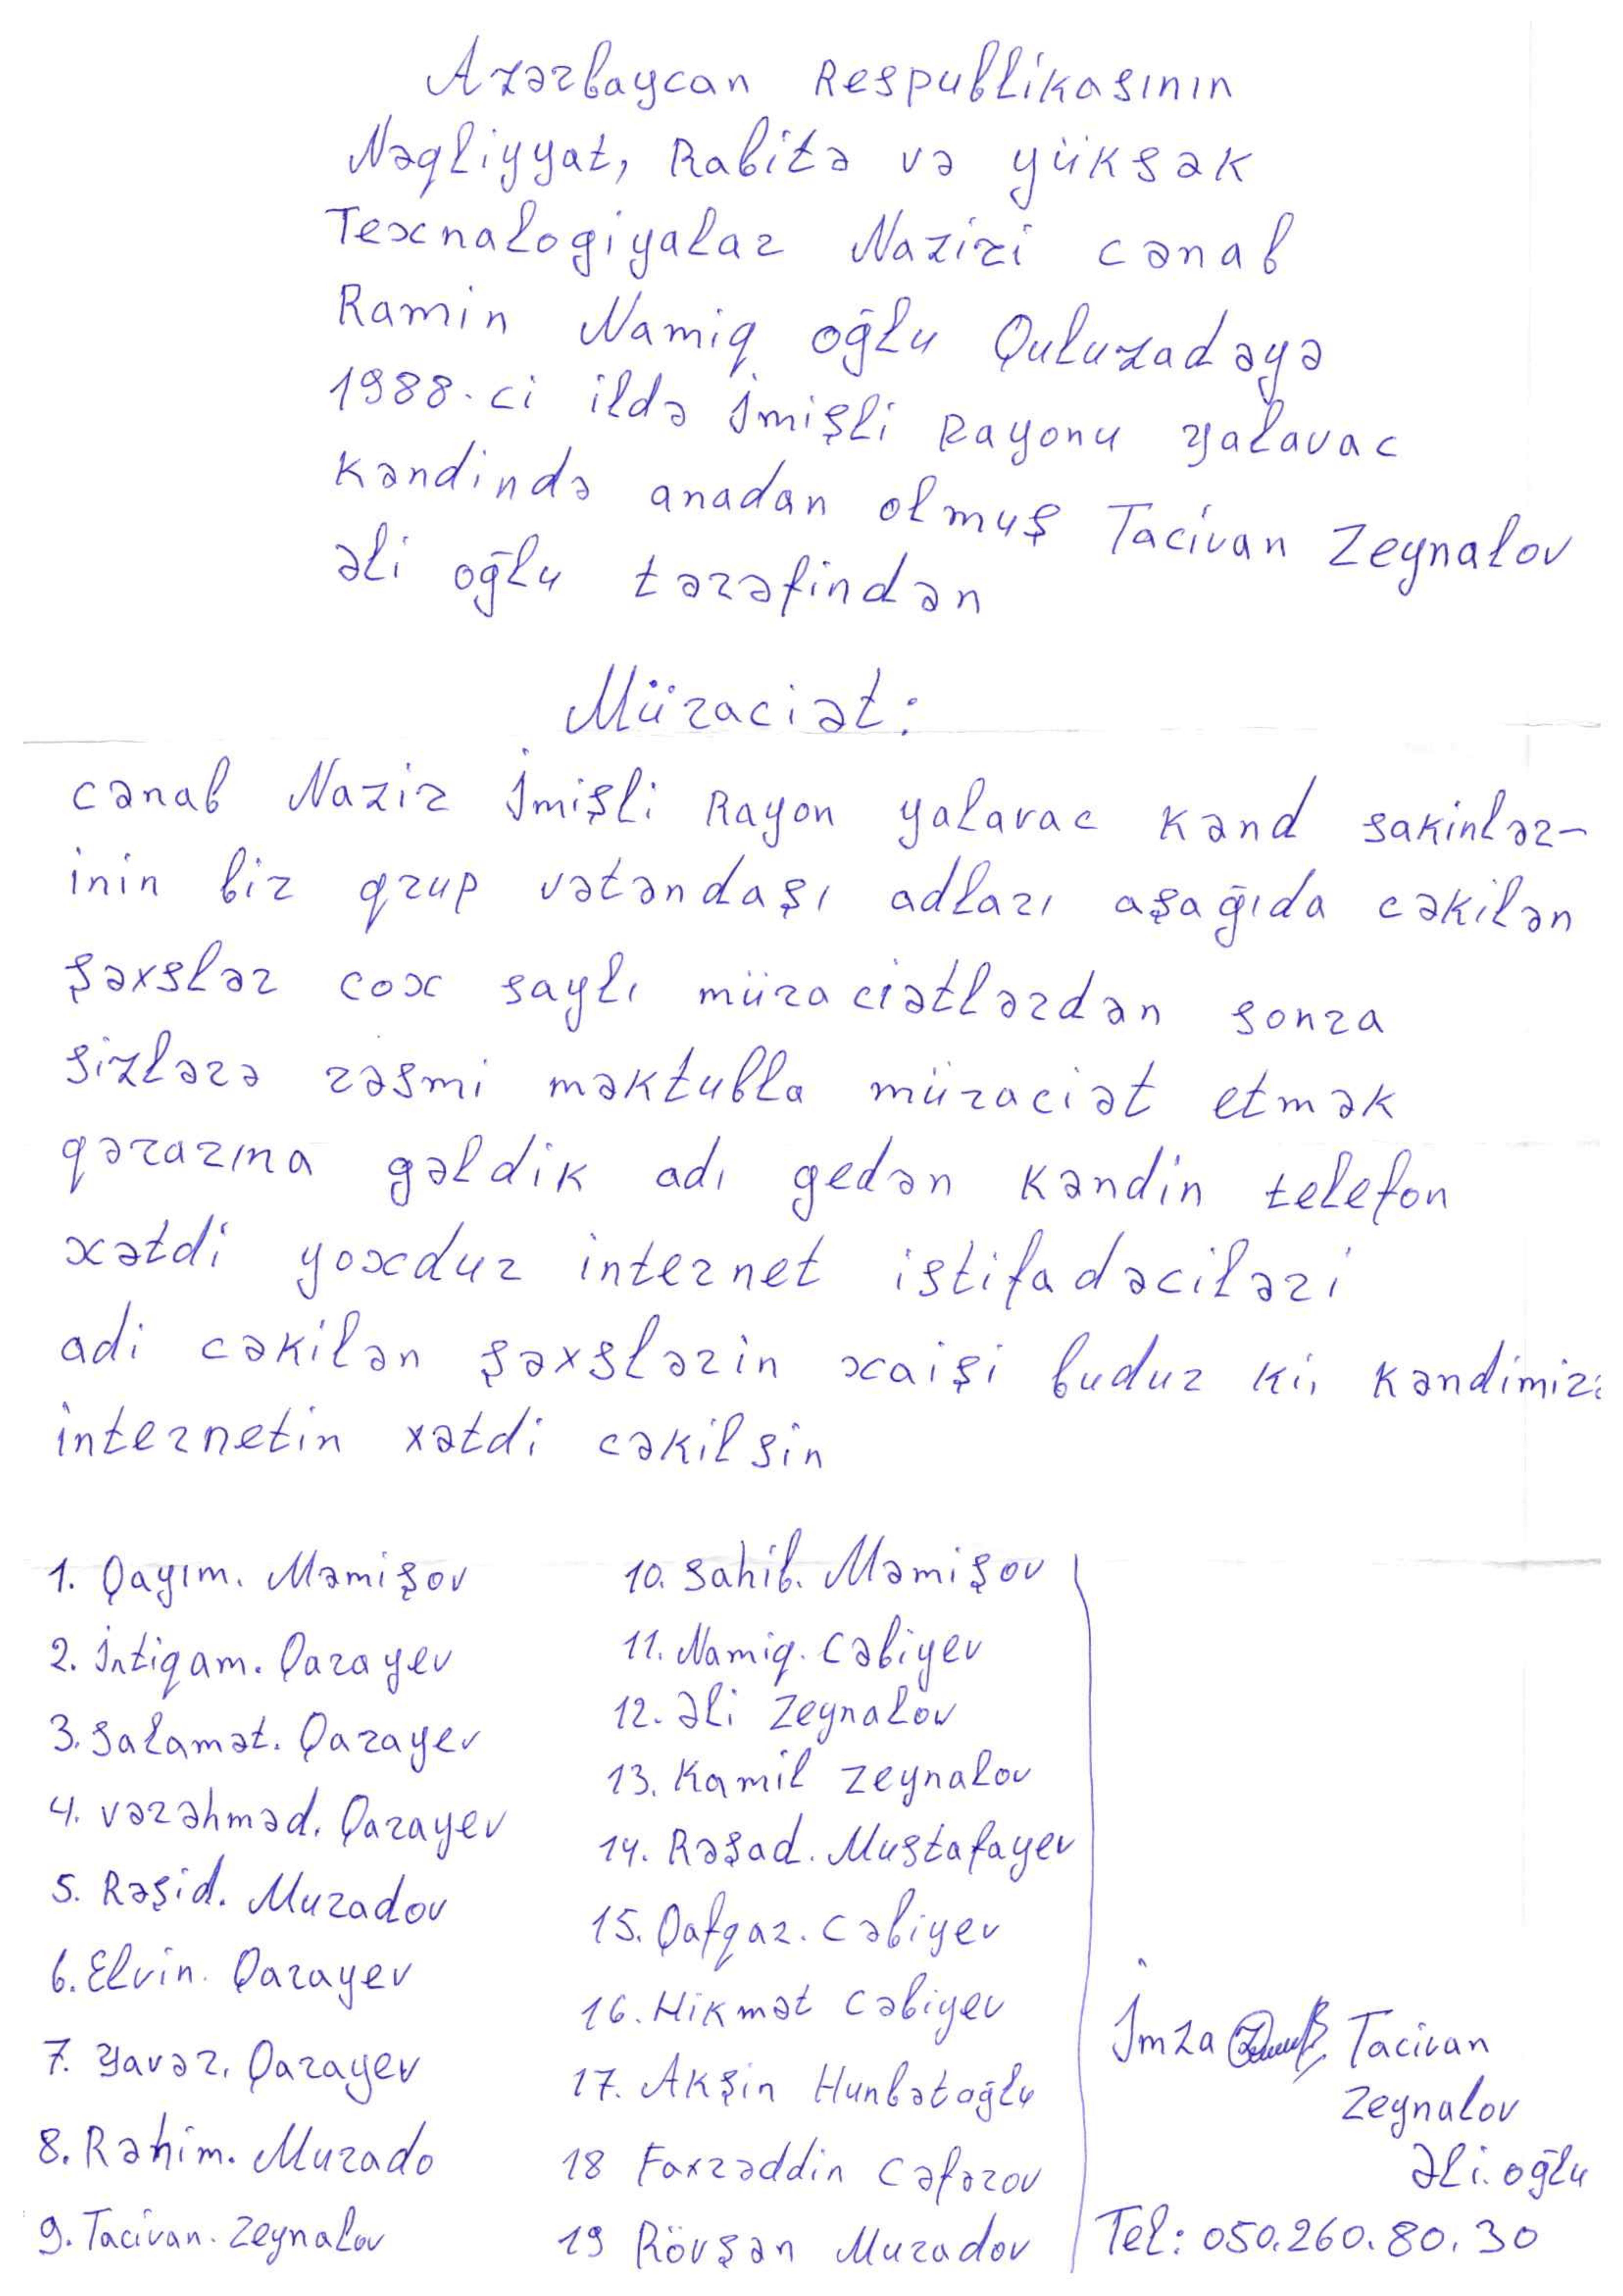 Azərbaycan Respublikasının
Nəqliyyat, Rabitə və yüksək
Texnalogiyalar Naziri cənab
Ramin Namiq oğlu Quluzadəyə
1988-ci ildə İmişli Rayonu yalavac
kəndində anadan olmuş Tacivan Zeynalov
əli oğlu tərəfindən
Müraciət:
cənab Nazir İmişli Rayon yalavac kənd sakinlər-
inin bir qrup vətəndaşı adları aşağıda cəkilən
şəxslər cox saylı müraciətlərdən sonra
sizlərə rəsmi məktubla müraciət etmək
qərarına gəldik adı gedən kəndin telefon
xətdi yoxdur internet istifadəciləri
adi cəkilən şəxslərin xaişi budur ki, kəndimizə
internetin xətdi cəkilsin
1. Qayım. Məmişov
2. İntiqam. Qarayev
3. Salamət. Qarayev
4. vərəhməd. Qarayev
5. Rəşid. Muradov
6. Elvin. Qarayev
7. Yavər. Qarayev
8. Rəhim. Murado
9. Tacivan. Zeynalov
10. Sahib. Məmişov
11. Namiq. Cəbiyev
12. Əli Zeynalov
13. Kamil Zeynalov
14. Rəşad. Mustafayev
15. Qafqaz. Cəbiyev
16. Hikmət Cəbiyev
17. Akşin Hunbətoğlu
18 Faxrəddin Cəfərov
19 Rövşən Muradov
İmza Tacivan
Zeynalov
Əli. oğlu
Tel: 050.260.80.30